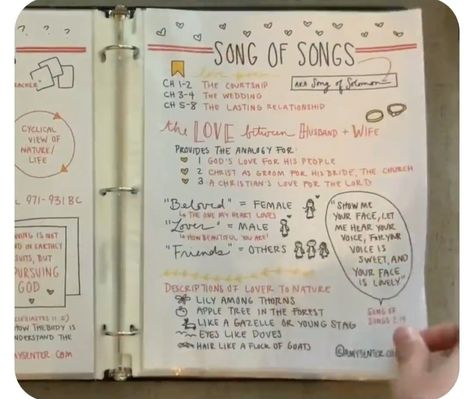 ? ? ?
CYCLICAL
VIEW OF
NATURE/
LIFE
971-931 BC
IN EARTHLY
BUT
PURSUING
GOD
HOW THE BODY IS
UNDERSTAND THE
SONG OF SONGS
AKA Song of Solomon
CH 1-2 THE COURTSHIP
CH 3-4 THE WEDDING
CH 5-8 THE LASTING RELATIONSHIP
the LOVE between HUSBAND + WIFE
PROVIDES THE ANALOGY FOR:
1 GOD'S LOVE FOR HIS PEOPLE
2 CHRIST AS GROOM FOR HIS BRIDE, THE CHURCH
3 A CHRISTIAN'S LOVE FOR THE LORD
"Beloved" = FEMALE
THE ONE MY HEART LOVES
"Lover" = MALE
HOW BEAUTIFUL YOU ARE!
"Friends" = OTHERS
"SHOW ME
YOUR FACE, LET
ME HEAR YOUR
VOICE, FOR YOUR
VOICE IS
SWEET, AND
YOUR FACE
IS LOVELY"
SONG OF
SONGS 2:14
DESCRIPTIONS OF LOVER TO NATURE
LILY AMONG THORNS
APPLE TREE IN THE FOREST
LIKE A GAZELLE OR YOUNG STAG
EYES LIKE DOVES
HAIR LIKE A FLOCK OF GOATS